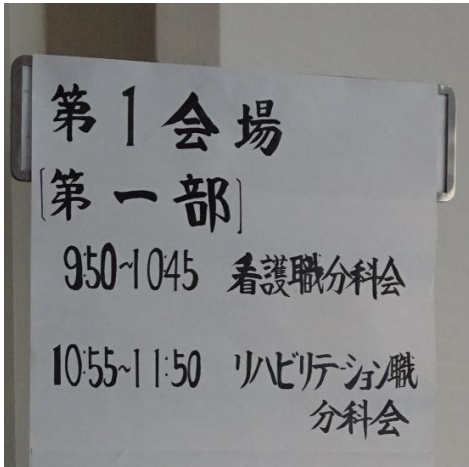 第1会場
[第一部]
9:50~10:45 看護職分科会
10:55~11:50 リハビリテーション職
分科会